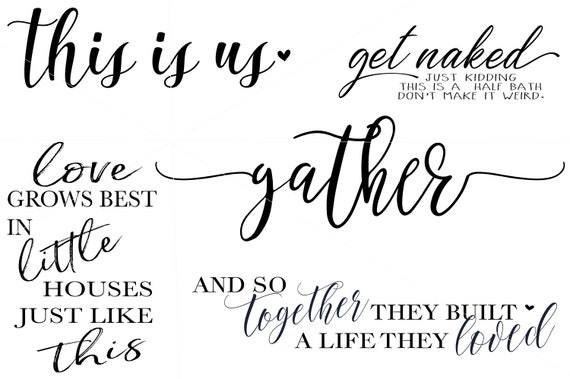 this is us
get naked
JUST KIDDING
THIS IS A HALF BATH
DON'T MAKE IT WEIRD.
gather
love
GROWS BEST
IN
little
HOUSES
JUST LIKE
this
AND SO
together THEY BUILT
A LIFE THEY loved